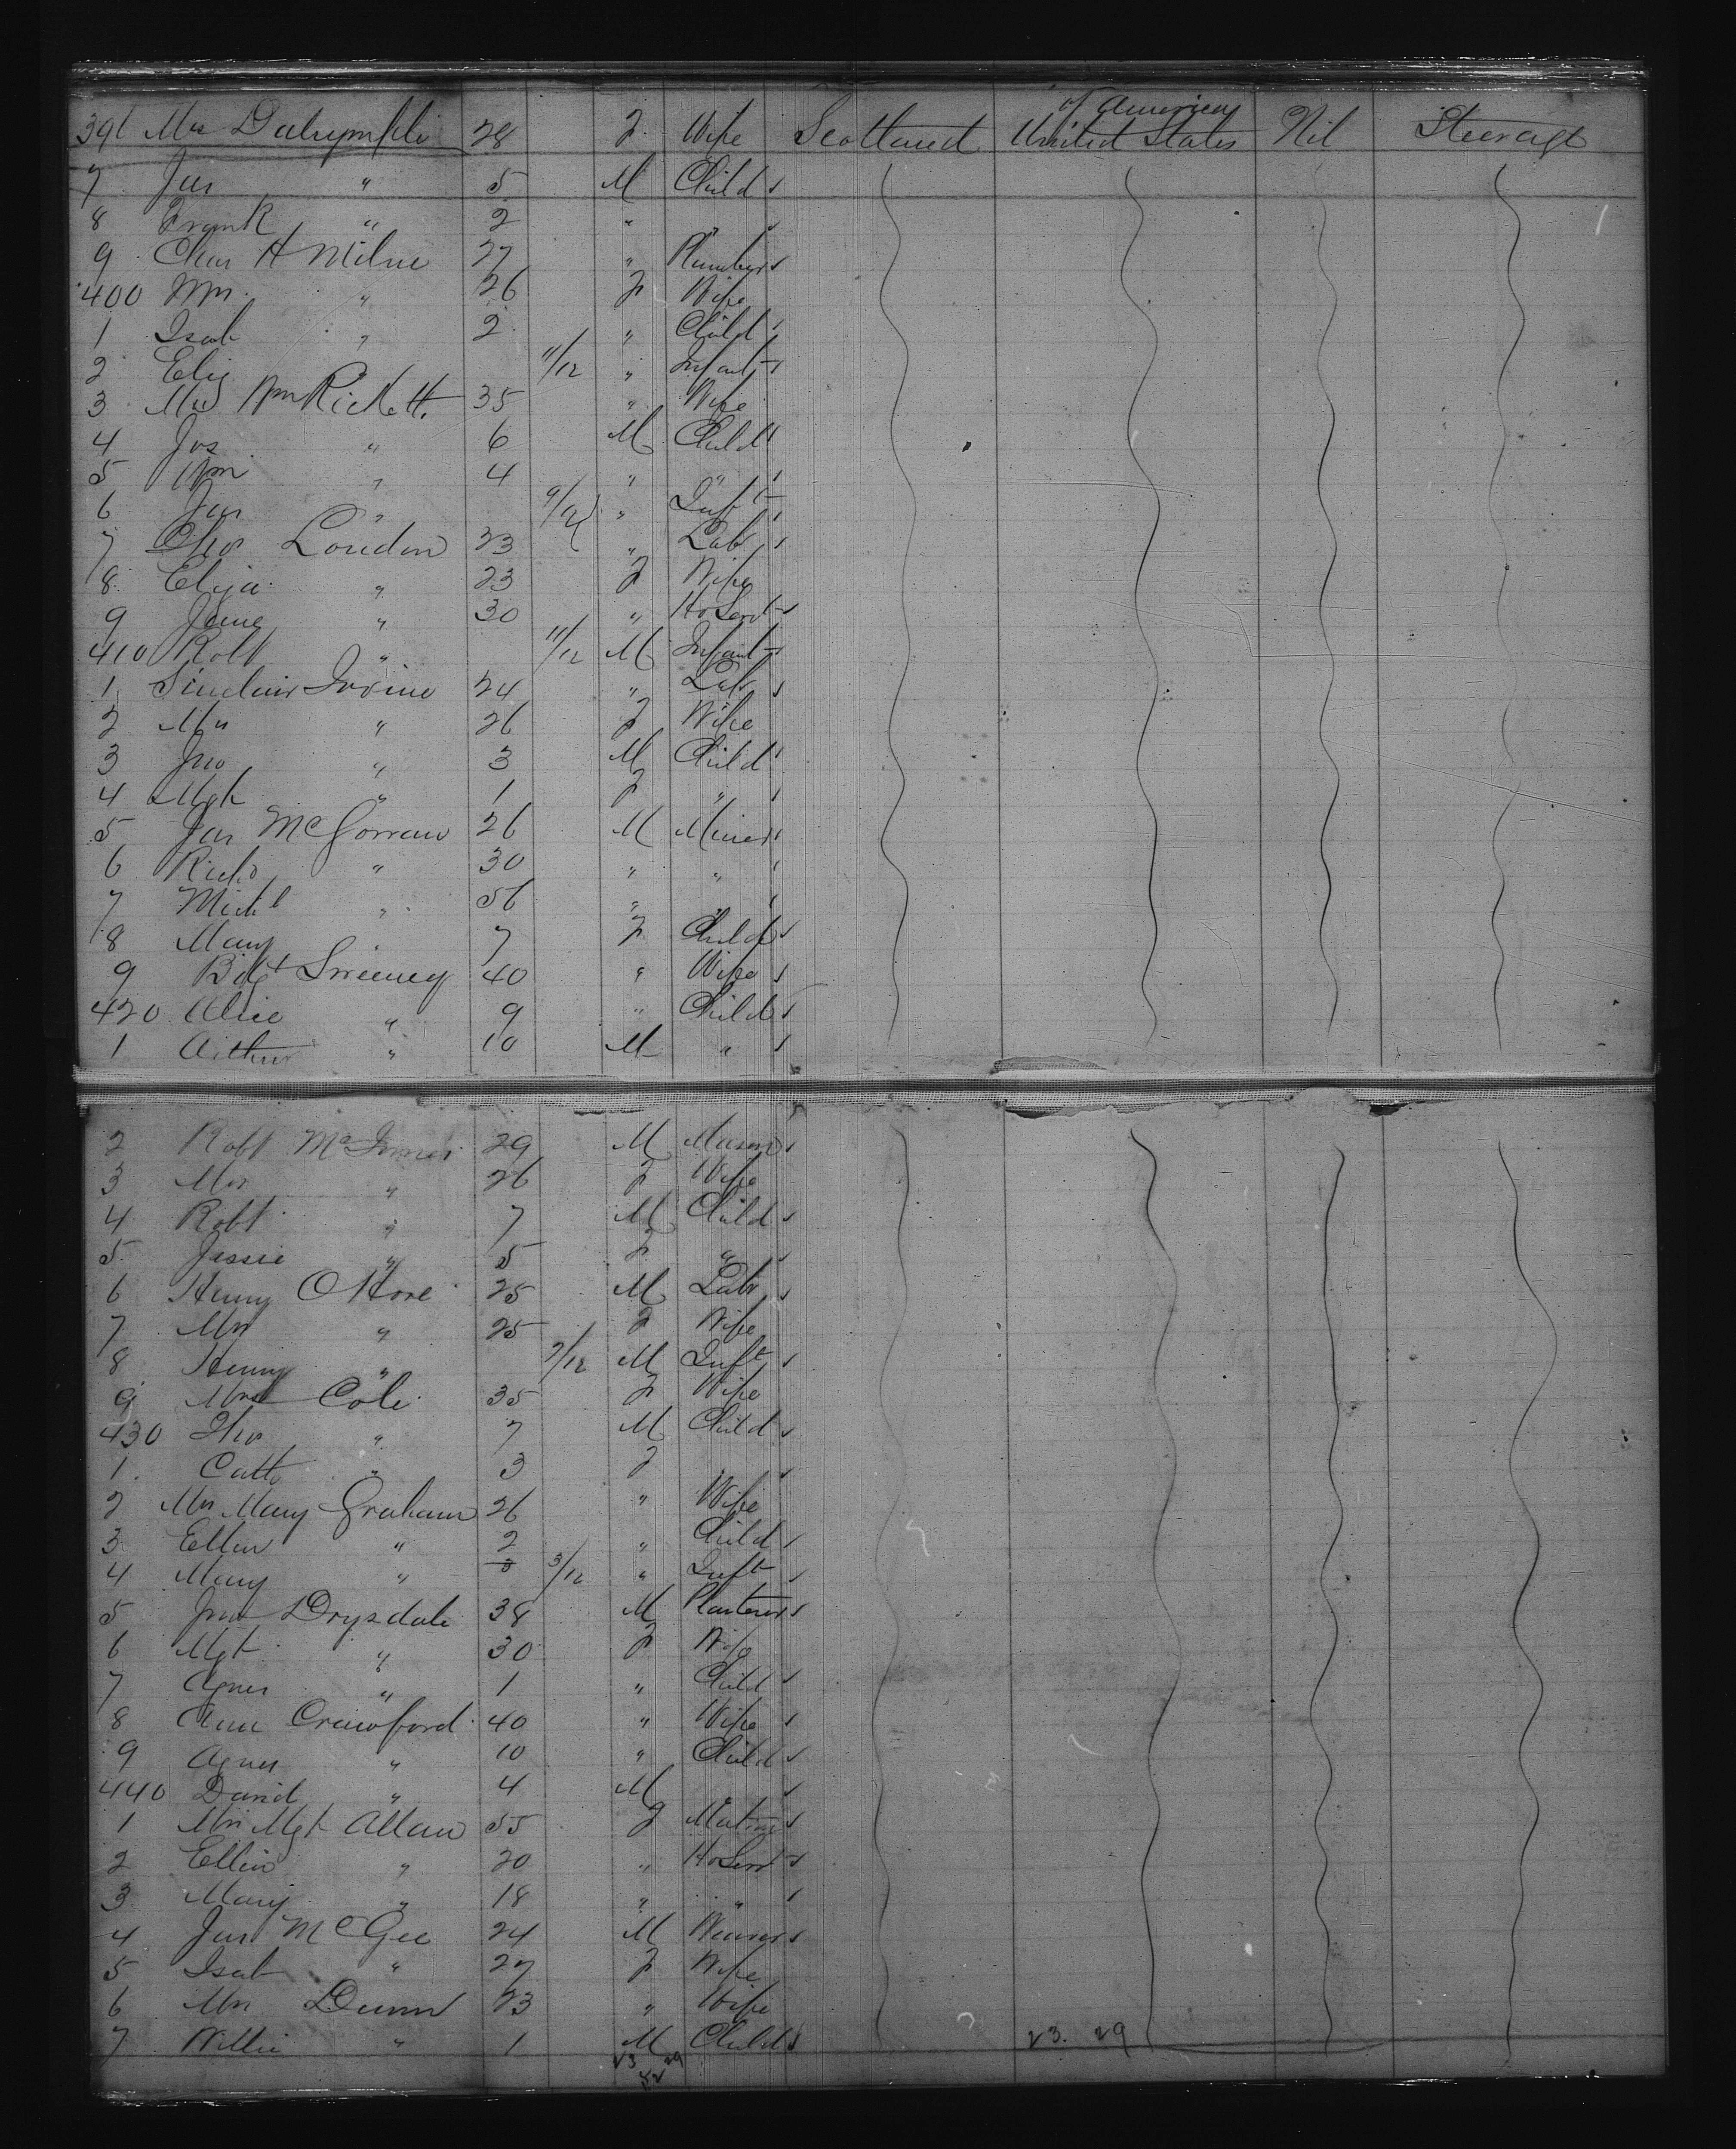 of America
396 Mrs Dalrymple 28 F Wife Scotland United States Nil Steerage
7 Jas " 5 M Child
8 Frank " 2 " "
9 Chas H Milne 27 " Plumber
400 Mrs " 26 F Wife
1 Isab " 2 " Child
2 Eliz 11/12 " Infant
3 Mrs Wm Rickett 35 " Wife
4 Jos " 6 M Child
5 Wm " 4 " "
6 Jas " 9/12 " Inft
7 Thos Loudon 23 " Labr
8 Eliza " 23 F Wife
9 Jane " 30 " Ho Servt
410 Robt " 11/12 M Infant
1 Sinclair Irvine 24 " Labr
2 Mrs " 26 F Wife
3 Jno " 3 M Child
4 Mgt " 1 F "
5 Jas McGorran 26 M Miner
6 Richd " 30 " "
7 Michl " 56 " "
8 Mary 7 F Child
9 Bidgt Sweeney 40 " Wife
420 Alice " 9 " Child
1 Arthur " 10 M "
2 Robt McInnes 29 M Mason
3 Mrs " 26 F Wife
4 Robt " 7 M Child
5 Jessie " 5 F "
6 Henry O'Hare 25 M Labr
7 Mrs " 25 F Wife
8 Henry " 7/12 M Inft
9 Mrs Cole 35 F Wife
430 Thos " 7 M Child
1 Cath " 3 F
2 Mrs Mary Graham 26 " Wife
3 Ellen " 2 " Child
4 Mary " 3/12 " Inft
5 Jno Drysdale 38 M Plasterer
6 Mgt " 30 F Wife
7 Agnes " 1 " Child
8 Ann Crawford 40 " Wife
9 Agnes " 10 " Child
440 David " 4 M "
1 Mrs Mgt Allan 55 F Matron
2 Ellen " 20 " Ho Servt
3 Mary " 18 " "
4 Jas McGee 24 M Weaver
5 Isab " 27 F Wife
6 Mrs Dunn 23 " Wife
7 Willie " 1 M Child 23. 29
23 29
52